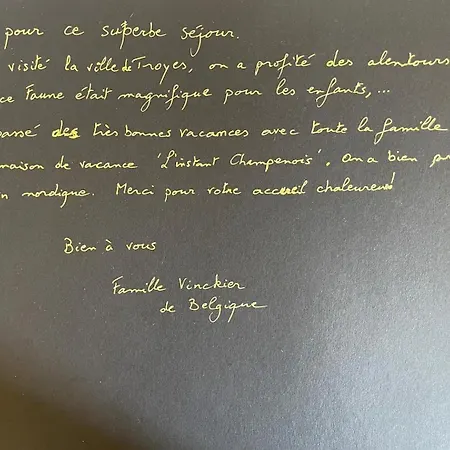 pour ce superbe séjour.
visité la ville de Troyes, on a profité des alentours
ce Faune était magnifique pour les enfants,...
passé des très bonnes vacances avec toute la famille
maison de vacance 'L'instant Champenois'. On a bien
n nordique. Merci pour votre accueil chaleureux!
Bien à vous
Famille Vinckier
de Belgique